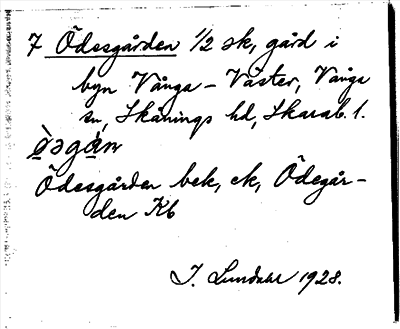 7 Ödesgården 1/2 sk, gård i
byn Vånga - Väster, Vånga
sn, Skånings hd, Skarab. l.
Ödesgården bek, ek, Ödegår-
den Kb
I. Lundahl 1928.